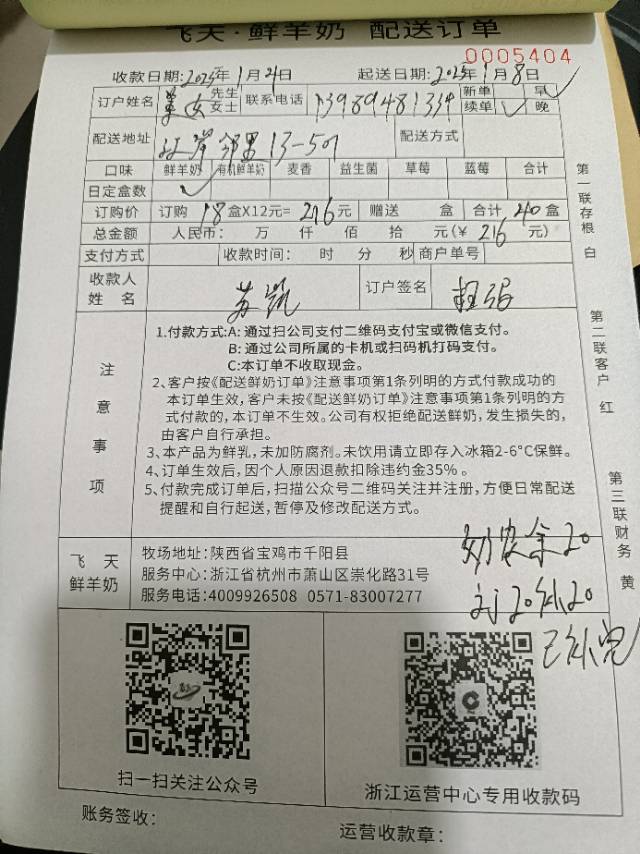 飞天·鲜羊奶 配送订单
0005404
收款日期:2025年1月21日 起送日期:2025年1月8日
订户姓名 先生 女士 联系电话 新单 早
续单 ✓ 晚
配送地址 邻里13-501 配送方式
口味 鲜羊奶 有机鲜羊奶 麦香 益生菌 草莓 蓝莓 合计
日定盒数 ✓
订购价 订购 18 盒X12元= 216 元 赠送 盒 合计 盒
总金额 人民币: 万 仟 佰 拾 元(¥ 216 元)
支付方式 收款时间: 时 分 秒 商户单号
收款人姓名 苏凯 订户签名
注意事项
1.付款方式:A: 通过扫公司支付二维码支付宝或微信支付。
B: 通过公司所属的卡机或扫码机打码支付。
C:本订单不收取现金。
2、客户按《配送鲜奶订单》注意事项第1条列明的方式付款成功的
本订单生效,客户未按《配送鲜奶订单》注意事项第1条列明的方
式付款的,本订单不生效。公司有权拒绝配送鲜奶,发生损失的,
由客户自行承担。
3、本产品为鲜乳,未加防腐剂。未饮用请立即存入冰箱2-6°C保鲜。
4、订单生效后,因个人原因退款扣除违约金35%。
5、付款完成订单后,扫描公众号二维码关注并注册,方便日常配送
提醒和自行起送,暂停及修改配送方式。
第一联存根 白
第二联客户 红
第三联财务 黄
余20
20补20
已补完
飞天
鲜羊奶
牧场地址:陕西省宝鸡市千阳县
服务中心:浙江省杭州市萧山区崇化路31号
服务电话:4009926508 0571-83007277
扫一扫关注公众号
浙江运营中心专用收款码
账务签收:
运营收款章: